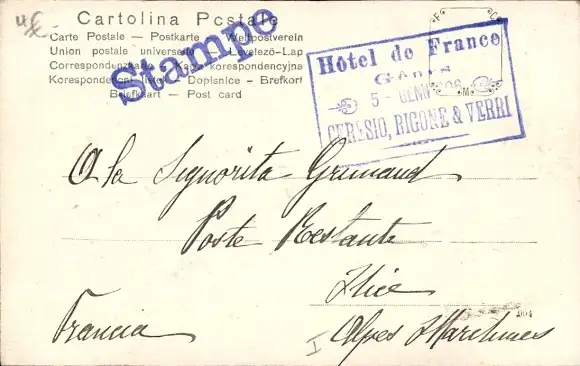 Cartolina Postale
Carte Postale — Postkarte — Weltpostverein
Union postale universelle — Levelező-Lap
Correspondenzkarte — Karta korespondencyjna
Korespondenční lístek — Dopisnice — Brefkort
Briefkaart — Post card
Stampe
Hôtel de France
Gênes
5 - GENN 1906
CERESIO, RIGONE & VERRI
A la Signorita Grimaud
Poste Restante
Nice
Francia
Alpes Maritimes